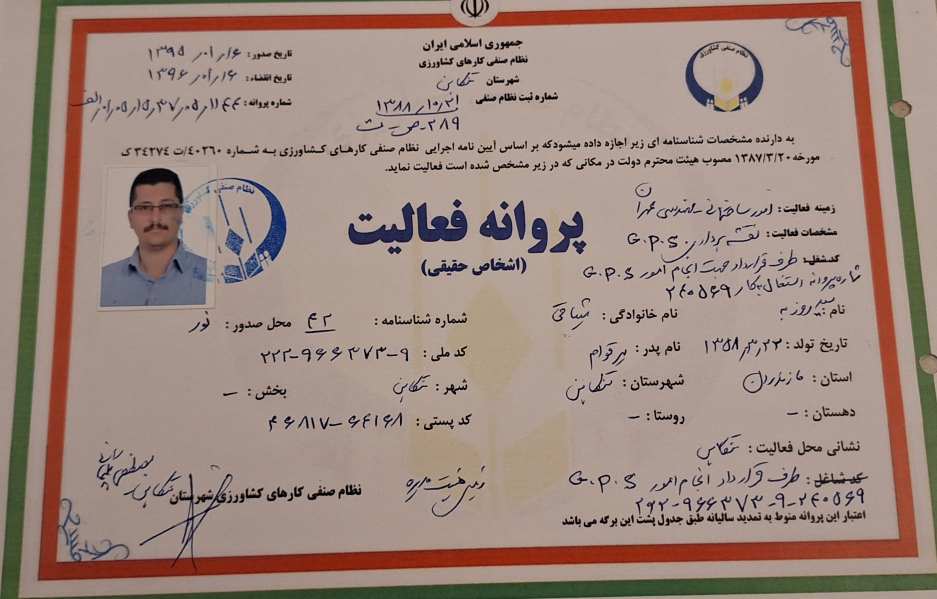 جمهوری اسلامی ایران
نظام صنفی کارهای کشاورزی
شهرستان تنکابن
شماره ثبت نظام صنفی ۱۳۸۸/۱۰/۲۱
۲۸۹-ص-ت
تاریخ صدور: ۱۳۹۵/۰۱/۱۶
تاریخ انقضاء: ۱۳۹۶/۰۱/۱۶
شماره پروانه:
نظام صنفی کشاورزی
به دارنده مشخصات شناسنامه ای زیر اجازه داده میشودکه بر اساس آیین نامه اجرایی نظام صنفی کارهای کشاورزی به شماره ۴۰۲۶۰/ت ۳۴۲۷۴ ک
مورخه ۱۳۸۷/۳/۲۰ مصوب هیئت محترم دولت در مکانی که در زیر مشخص شده است فعالیت نماید.
نظام صنفی کشاورزی
پروانه فعالیت
(اشخاص حقیقی)
زمینه فعالیت: امور ساختمانی - مهندسی عمران
مشخصات فعالیت: نقشه برداری G.P.S
کدشغل: طرف قرارداد جهت انجام امور G.P.S
شماره پروانه اشتغال بکار ۲۴۰۵۶۹
نام: سید روزبه نام خانوادگی: شماره شناسنامه: ۴۲ محل صدور: نور
تاریخ تولد: ۱۳۵۸/۳/۲۲ نام پدر: میرقوام کد ملی: ۲۲۲-۹۶۶۳۷۳-۹
استان: مازندران شهرستان: تنکابن شهر: تنکابن بخش: -
دهستان: - روستا: - کد پستی: ۴۶۸۱۷-۶۴۱۶۸
نشانی محل فعالیت: تنکابن
کدشاغل: طرف قرارداد انجام امور G.P.S
۲۲۲-۹۶۶۳۷۳-۹-۲۴۰۵۶۹
اعتبار این پروانه منوط به تمدید سالیانه طبق جدول پشت این برگه می باشد
نظام صنفی کارهای کشاورزی شهرستان تنکابن